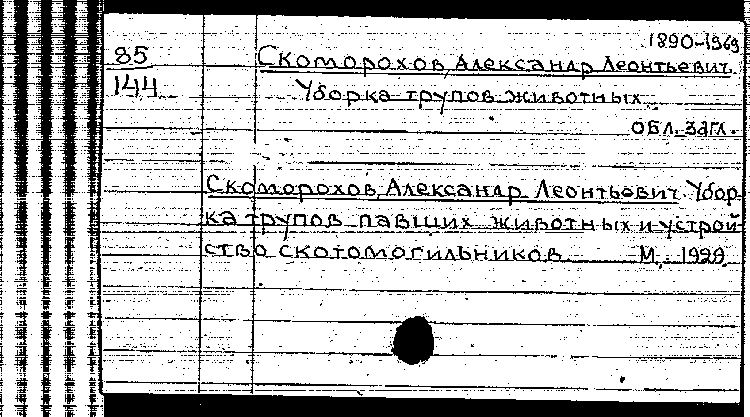 1890-1969
85 Скоморохов, Александр Леонтьевич.
144 Уборка трупов животных.
обл. загл.
Скоморохов, Александр Леонтьевич. Убор-
ка трупов павших животных и устрой-
ство скотомогильников. М., 1929.